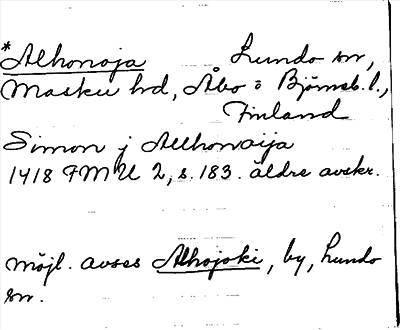 *Alhonoja Lundo sn,
Masku hd, Åbo o Björneb. l.,
Finland
Simon j Allhonaija
1418 FMU 2, s. 183. äldre avskr.
möjl. avses Alhojoki, by, Lundo
sn.